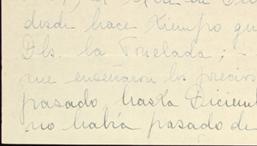 desde hace tiempo qu
Dls. la Tonelada; -
me enseñaron los precios
pasado, hasta Diciem
no había pasado de